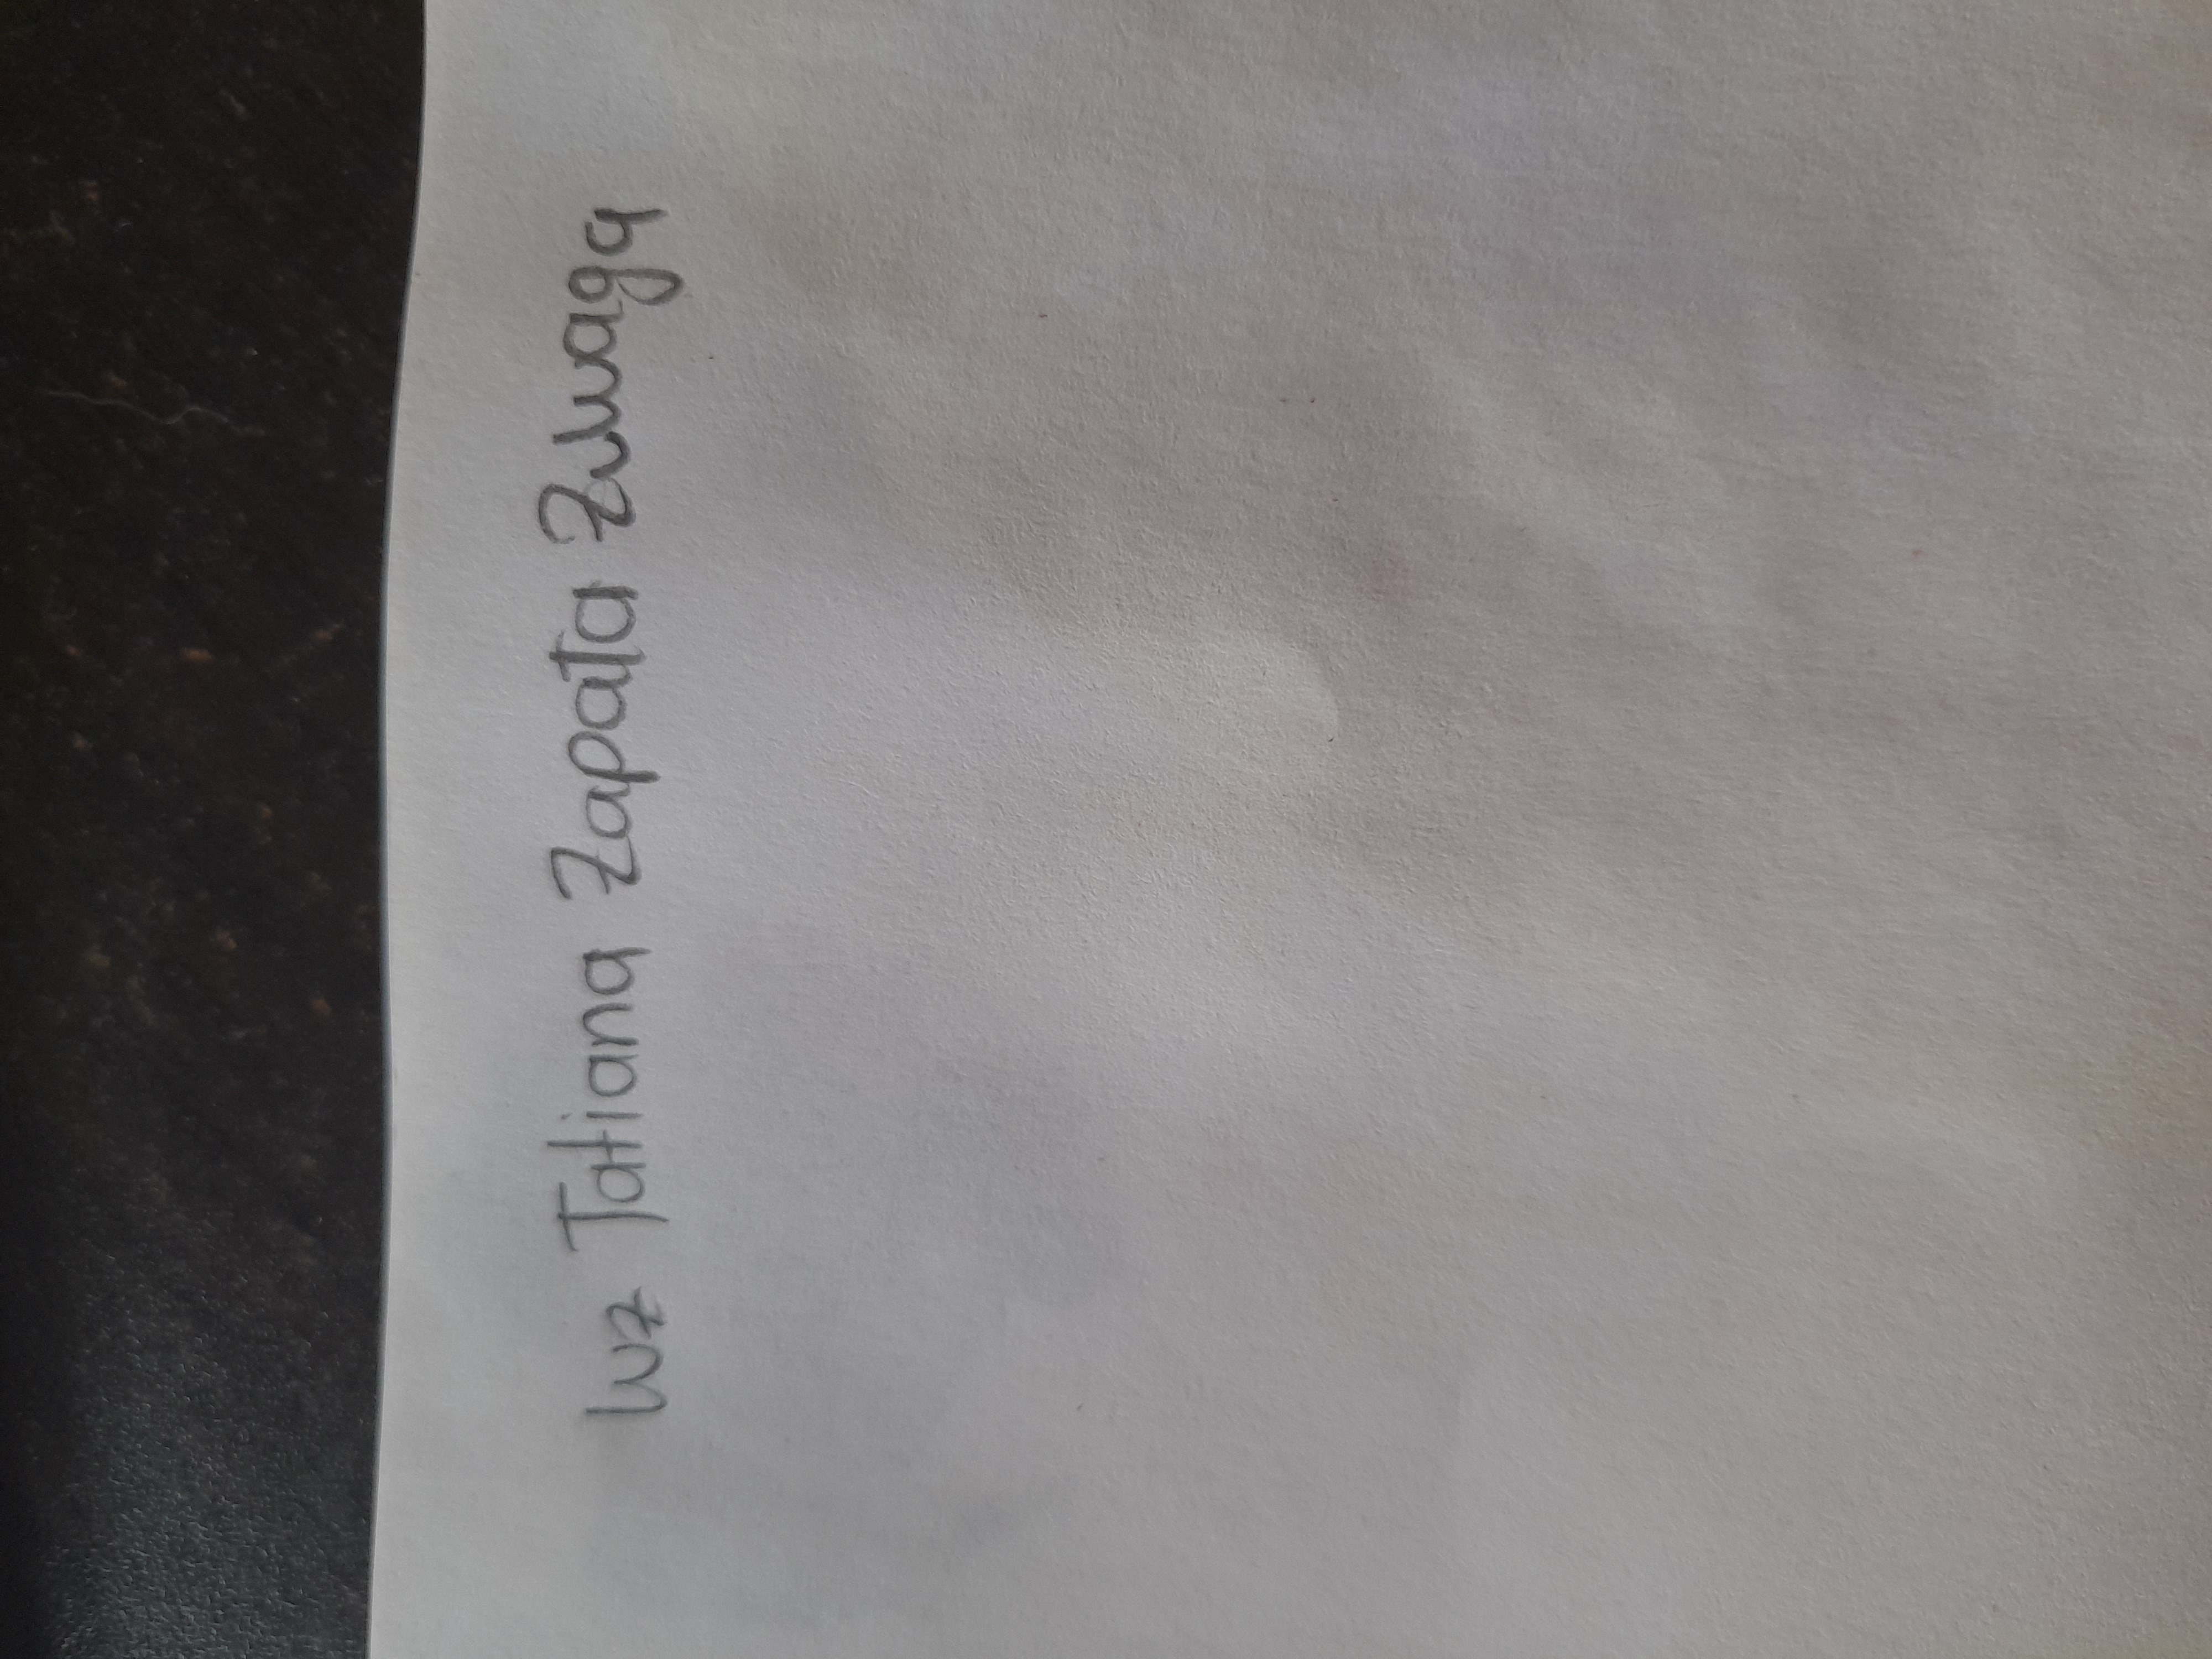 luz Tatiana Zapata Zuluaga